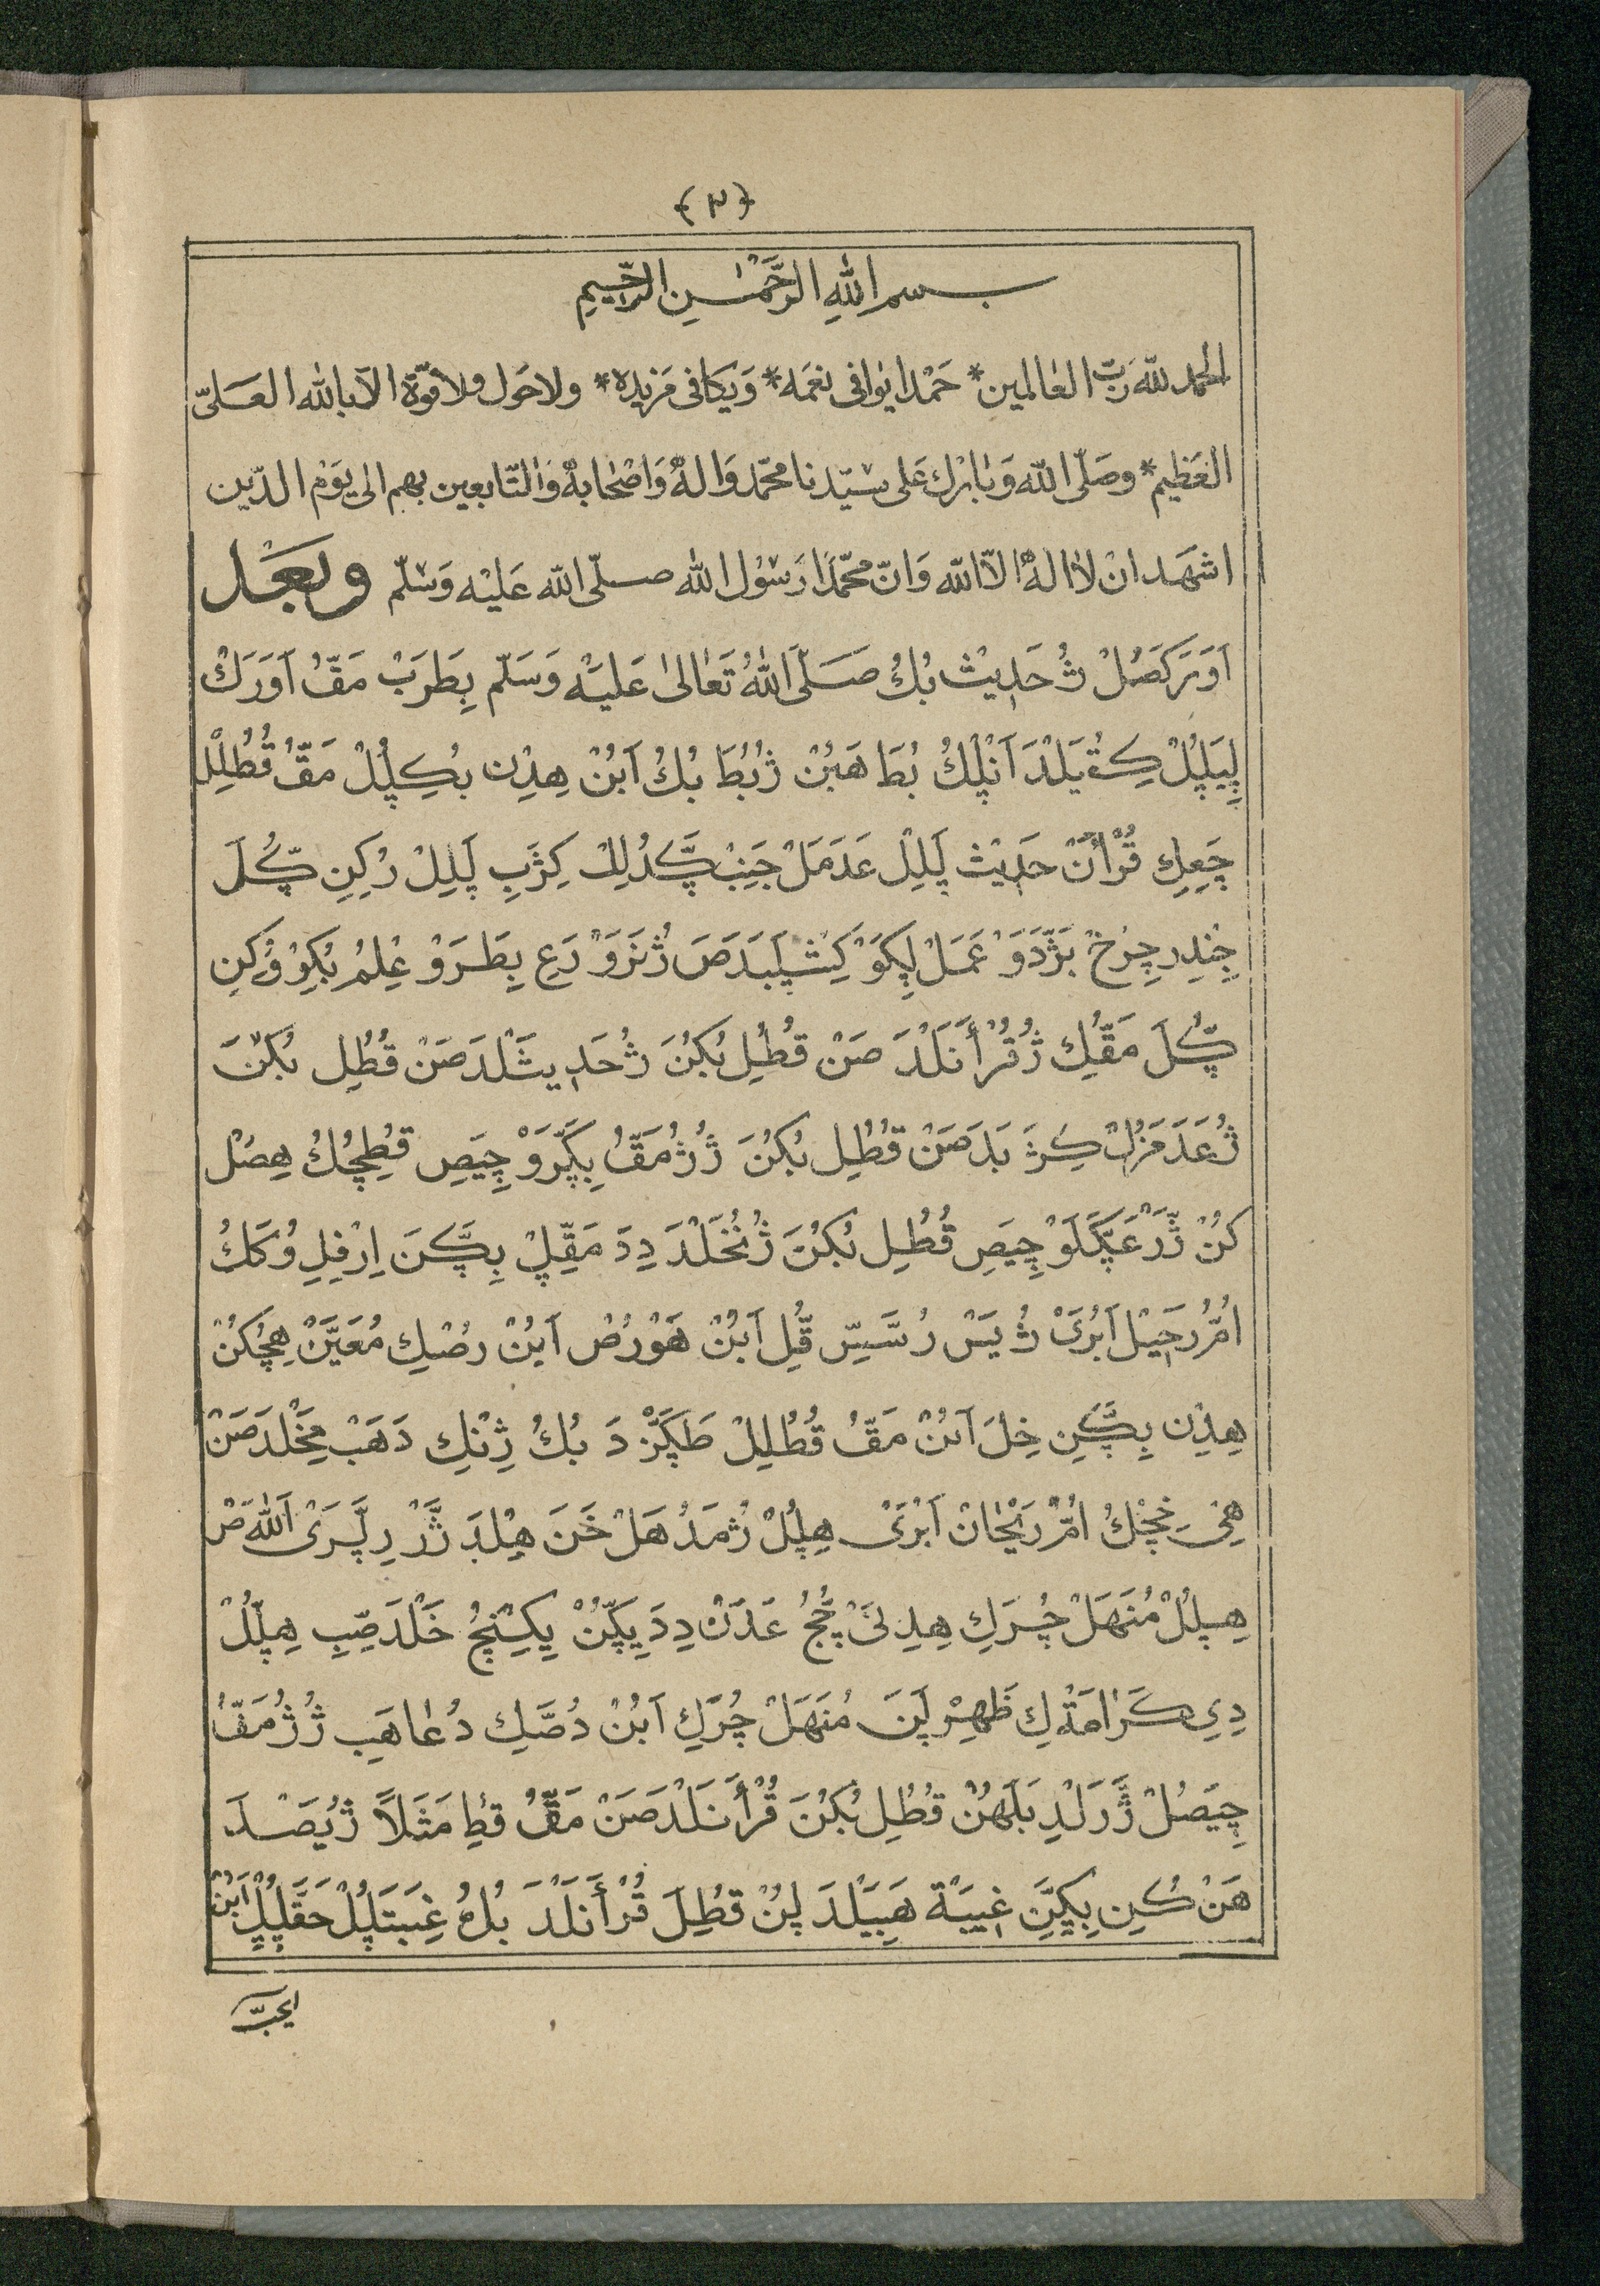 ﴿٢﴾
بسم اللهِ الرَّحْمٰنِ الرَّحِيمِ
الحمد للّه رَبّ العٰالمين * حَمْدا يوٰافى نعَمَه * وَيكَافى مَزيده * ولا حَول ولا قوّة الا بالله العَلىّ
العَظيم * وصَلّى اللّه وَبٰارك عَلى سيّدنا محمّد وَاله وَاصْحٰابه وَالتّابعين بهم الى يوَم الدّين
اشهَد انْ لاٰ الهَ الاّ اللّه وَانّ محمّدًا رَسوُل الله صلّى اللّه عَليْه وَسَلّم وبَعَد
اَوَرَكَصُلْ ژُ حَدِيثْ بُكُ صَلَّى اللهُ تَعَالىٰ عَليَهْ وَسَلّم بِطَرَبْ مَقّ اَوَرَكْ
لِيَلِڸُلْ كِتُيَلْدَ اَنْڸُكُ بُطَا هَبُنْ ژُبُطَ بُكُ اَبُنْ هِدِن بُكِڸُلْ مَقُّ قُطُلِلْ
چَعِكِ قُرْأَنْ حَدِيث ڸَلِلْ عَدَمَلْ جَنِبْ ڮَّدُلِكْ كِژَبِ ڸَلِلْ رُكِنِ ڮُّلَ
جِنْدِر چِرْخْ بَژَّدَوَ عَمَلْ لِڮَوَ كِتْڸَبَدَصَ ژُنَزَوَ رَعِ بِطَرَوْ عِلمُ بُكِوْ وُكِنِ
ڮُّلَ مَقُّكِ ژُقُرْأَنَلْدَ صَنْ قُطُلِ بُكُنَ ژُحَدِيثَلْدَصَنْ قُطُلِ بُكُنَ
ژُعَدَمَزُلْ كِژَ بَدَصَنْ قُطُلِ بُكُنَ ژُژُمَقُّ بِڮَّرَوْ چِيَصِ قُطِچُكُ هِصُلْ
كُنْ ژَّرْ عَڮَّلَوْ چِيَصِ قُطُلِ بُكُنَ ژُنُخَلْدَ دِدَ مَقِّڸْ بِڮَّنَ اِرْفِلِ وُكَكُ
اُمُّرُ رَحِيْل اَبُرَىْ ژُ يَسْ رُسَّسِّ قُّلِ اَبُنْ هَوْرُصْ اَبُنْ رصْكِ مُعَيَّنْ هِچُكُنْ
هِدِن بِڮَّنِ خِلَ اَبُنْ مَقُّ قُطُلِلْ طَڮَّرْدَ بُكُ ژِنْكِ دَهَبْ مِخَلْدَصَنْ
هِىْ خِچْكُ اُمُّ رَيْحٰانْ اَبْرَىْ هِڸُلْ ژُمَدُهَلْ خَنَ هِڸْدَ ژَّرْ رِلَّرَىْ اَللهَصْ
هِڸُلْ مُنَهَلْ چُرَكِ هِدِنَىْ چَّجُ عَدَنْ دِدَ يِڮَّنْ يِكِنْچُ خَلْدَصِّبِ هِڸُلْ
دِىِ كَرٰامَةْكِ ظَهِرْ ڸَنَ مُنَهَلْ چُرَكِ اَبُنْ دُصَّكِ دُعٰا هَبِ ژُژُمَقُّ
چِيَصُلْ ژَّرَلْدِ بَلَهُنْ قُطُلِ بُكُنَ قُرْأَنَلْدَصَنْ مَقُّ قُطِ مَثَلاً ژُيَصْدَ
هَنْ كُنِ بِڮَّنِ غِيبَةْ هَبِيَلْدَ ڸُنْ قُطُلَ قُرْأَنَلْدَ بُكُ غِبَتَڸُلْ حَقَّڸُلْ اَبُنْ